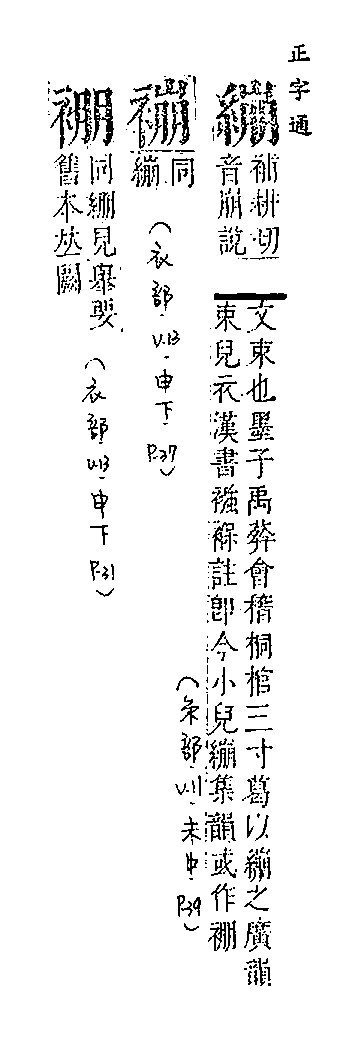 正字通
繃 補耕切音崩說
文束也墨子禹葬會稽桐棺三寸葛以繃之廣韻
束兒衣漢書襁褓註卽今小兒繃集韻或作𥀂
(糸部.V.11.未中.P.39)
同繃
(衣部.V.13.申下.P.37)
同繃見舉要
舊本𠀤闕
(衣部.V.13.申下.P.31)